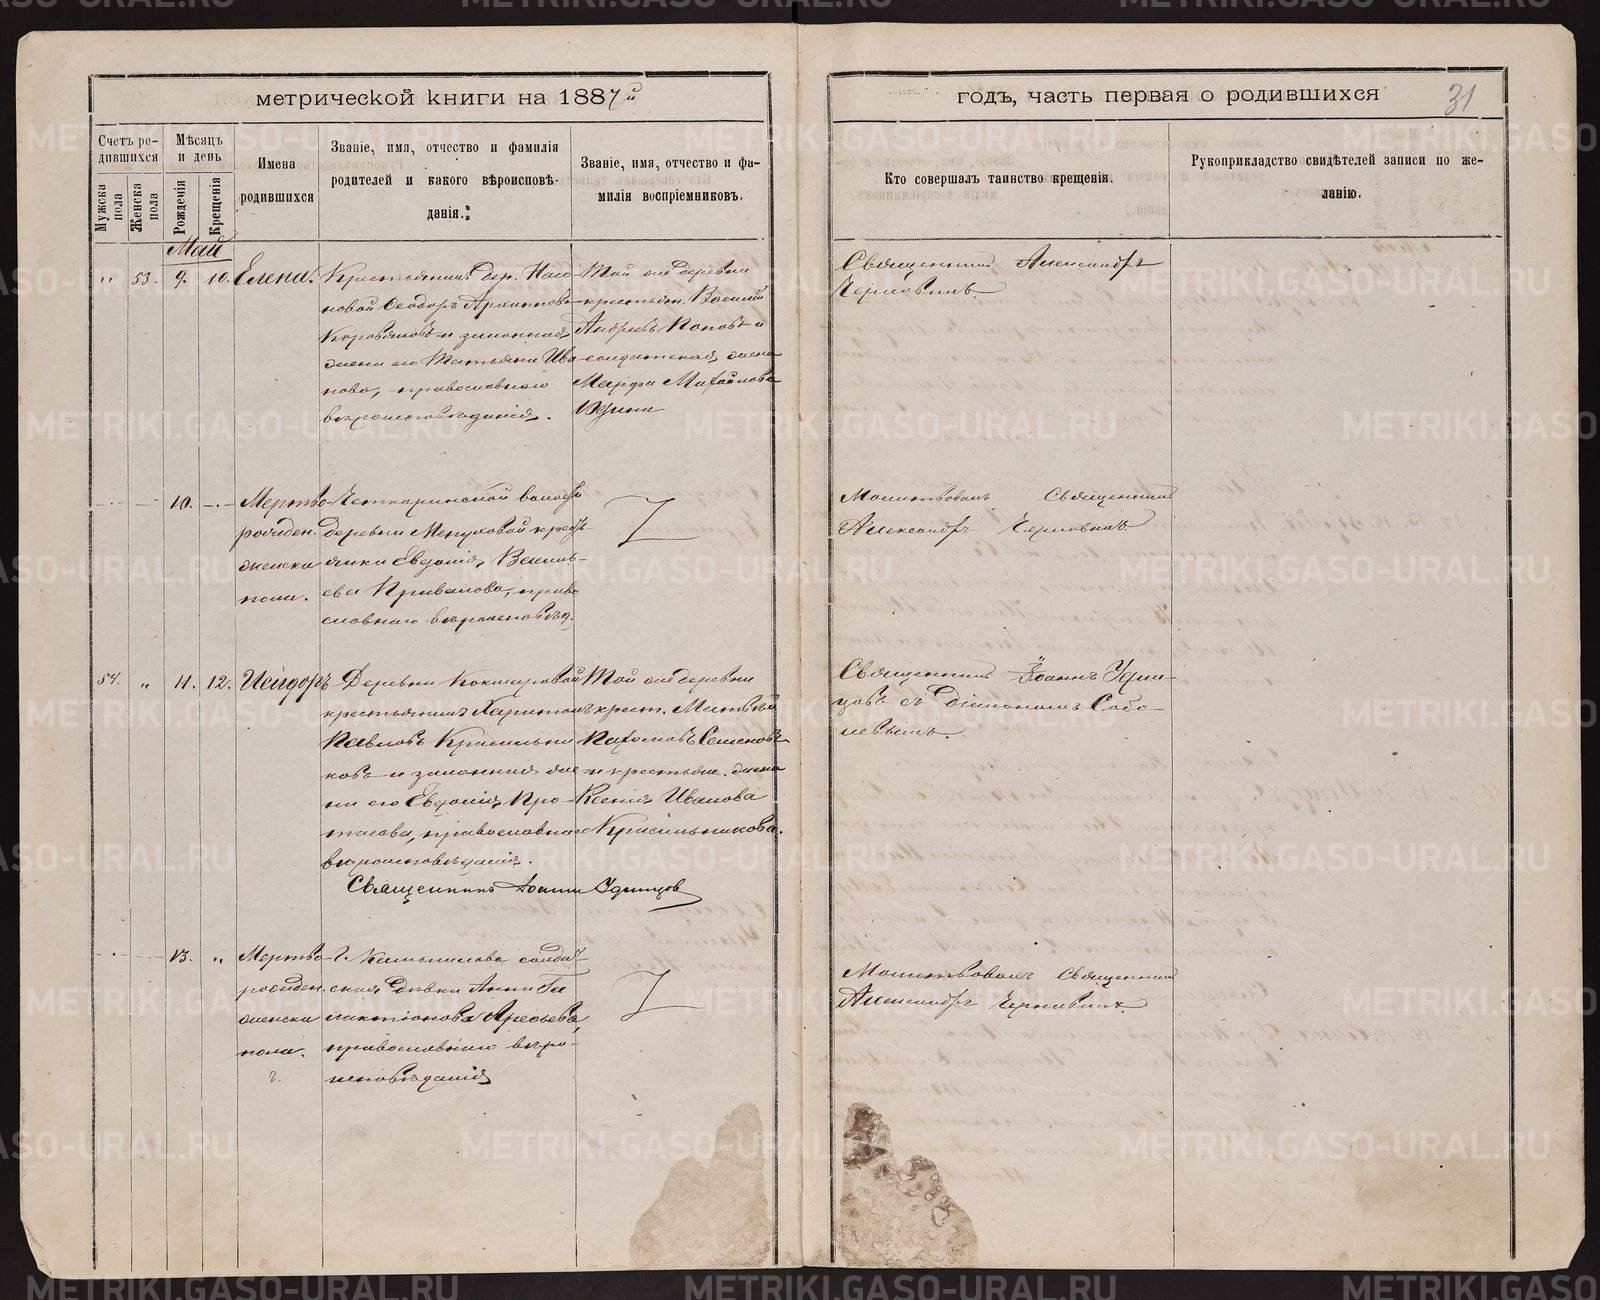 метрической книги на 1887й
годъ, часть первая о родившихся
31
Счетъ родившихся
Мужска пола
Женска пола
Мѣсяцъ и день
Рожденія
Крещенія
Имена родившихся
Званіе, имя, отчество и фамилія
родителей и какого вѣроисповѣ-
данія.
Званіе, имя, отчество и фа-
милія воспріемниковъ.
Кто совершалъ таинство крещенія.
Рукоприкладство свидѣтелей записи по же-
ланію.
Май
53. 9. 10. Елена.
Крестьянинъ дер.
новой Ѳеодоръ Архиповъ
и законная
жена его Татьяна Ива
нова, православнаго
вѣроисповѣданія.
Той же деревни
крестьян. Василій
Андреевъ Поповъ и
солдатская жена
Марфа Михайлова
Священникъ Александръ
Черновинъ.
10.
Мертво
рожден.
женска
пола.
волости
деревни
Евдокія Василь-
ева Привалова, право
славнаго вѣроисповѣд.
Молитвовалъ Священникъ
Александръ
54. " 11. 12. Исидоръ
Деревни Кокшаровой
крестьянинъ Харитонъ
Павловъ Красильни
ковъ и законная же
на его Евдокія Про-
тасова, православнаго
вѣроисповѣданія.
Той же деревни
крест. Матвѣй
Пахомовъ Семеновъ
и крестьян. жена
Ксенія Иванова
Красильникова.
Священникъ Іоаннъ Удинцовъ
Священникъ Іоаннъ Удин-
цовъ съ діакономъ Собо-
левымъ.
13. "
Мертво
рожден.
женска
пола.
г. Камышлова солдат-
ская дѣвка Анна Га
лактіонова Аресьева,
православнаго вѣро-
исповѣданія
Молитвовалъ Священникъ
Александръ
METRIKI.GASO-URAL.RU